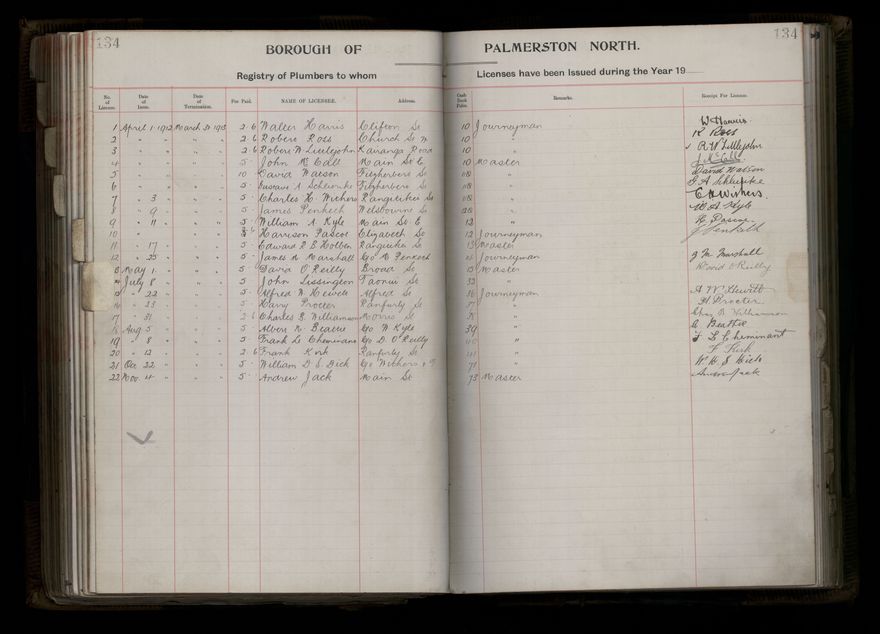 134
134
BOROUGH OF PALMERSTON NORTH.
Registry of Plumbers to whom Licenses have been Issued during the Year 19
No. of License. Date of Issue. Date of Termination. Fee Paid. NAME OF LICENSEE. Address. Cash Book Folio. Remarks. Receipt For License.
1 April 1 1912 March 31 1913 2 6 Walter Harris Clifton St 10 Journeyman W Harris
2 " " " " " 2 6 Robert Ross Church St W 10 " R Ross
3 " " " " " 2 6 Robert W Littlejohn Kairanga Road 10 " R W Littlejohn
4 " " " " " 5 - John Mc Call Main St E 10 Master J McCall
5 " " " " 10 David Watson Fitzherbert St " David Watson
6 " " " " 5 - Gustave A Fitzherbert St "
7 " 3 " " " 5 - Charles H. Withers Rangitikei St " C H Withers
8 " 9 " " " 5 - James Penketh St " W A Kyle
9 " 11 " " " 5 - William A Kyle Main St E 12 "
10 " " " " Harrison Pascoe Elizabeth St 12 Journeyman J Penketh
11 " 17 " " 5 - Edward R B Holben Rangitikei St 13 Master
12 " 25 " " 5 - James M Marshall C/o Penketh Journeyman J M Marshall
13 May 1 " " 5 - David O'Reilly Broad St 15 Master David O'Reilly
14 July 8 " " 5 - John Lissington Taonui St "
15 " 22 " " 5 - Alfred W Hewitt Alfred St 36 Journeyman A W Hewitt
16 " 23 " " 5 - Harry Procter Ranfurly St " H Procter
17 " 31 " " 2 6 Charles B Williamson Morris St " Chas B Williamson
18 Aug 5 " " 5 - Albert Beattie C/o W Kyle 39 " A Beattie
19 " 8 " " 5 - Frank Le Cheminant C/o D. O'Reilly 40 " F L Cheminant
20 " 12 " " 2 6 Frank Kirk Ranfurly St " F Kirk
21 Oct 22 " " 5 - William D S Dick C/o Withers 71 "
22 Nov. 4 " " 5 - Andrew Jack Main St 73 Master Andrew Jack